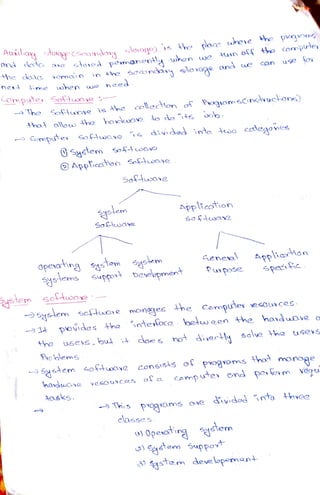 Auxilary storage (secondary storage) is the place where the programs
and data are stored permanently when we turn off the computer
the data remain in the secondary storage and we can use for
next time when we need
Computer Software :-
→ The Software is the collection of Programs (instructions)
that allow the hardware to do its job.
→ Computer Software is divided into two categories
① System Software
② Application Software
Software
System Software
Application Software
operating systems
System support
System Development
General Purpose
Application specific.
System software :-
→ System software manages the Computer resources.
→ It provides the interface between the hardware
the users, but it does not directly solve the users
Problems
→ System software consists of programs that manage
hardware resources of a computer and perform
tasks.
→
→ This programs are divided into three
classes
1) Operating system
2) System Support
3) System development